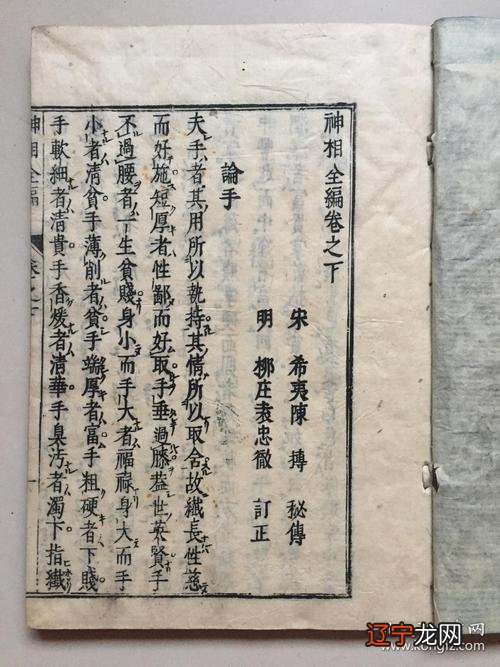 神相全編卷之下
宋 希夷陳 搏 秘傳
明 柳庄袁忠徹 訂正
論手
夫手者其用所以執持其情所以取舍故纖長性慈
而好施短厚者性鄙而好取手垂過膝蓋世英賢手
不過腰者一生貧賤身小而手大者福祿身大而手
小者清貧手薄削者貧手端厚者富手粗硬者下賤
手軟細者清貴手香煖者清華手臭汚者濁下指纖
神相全編 卷之下
辽宁龙网
网
www.kongfz.com